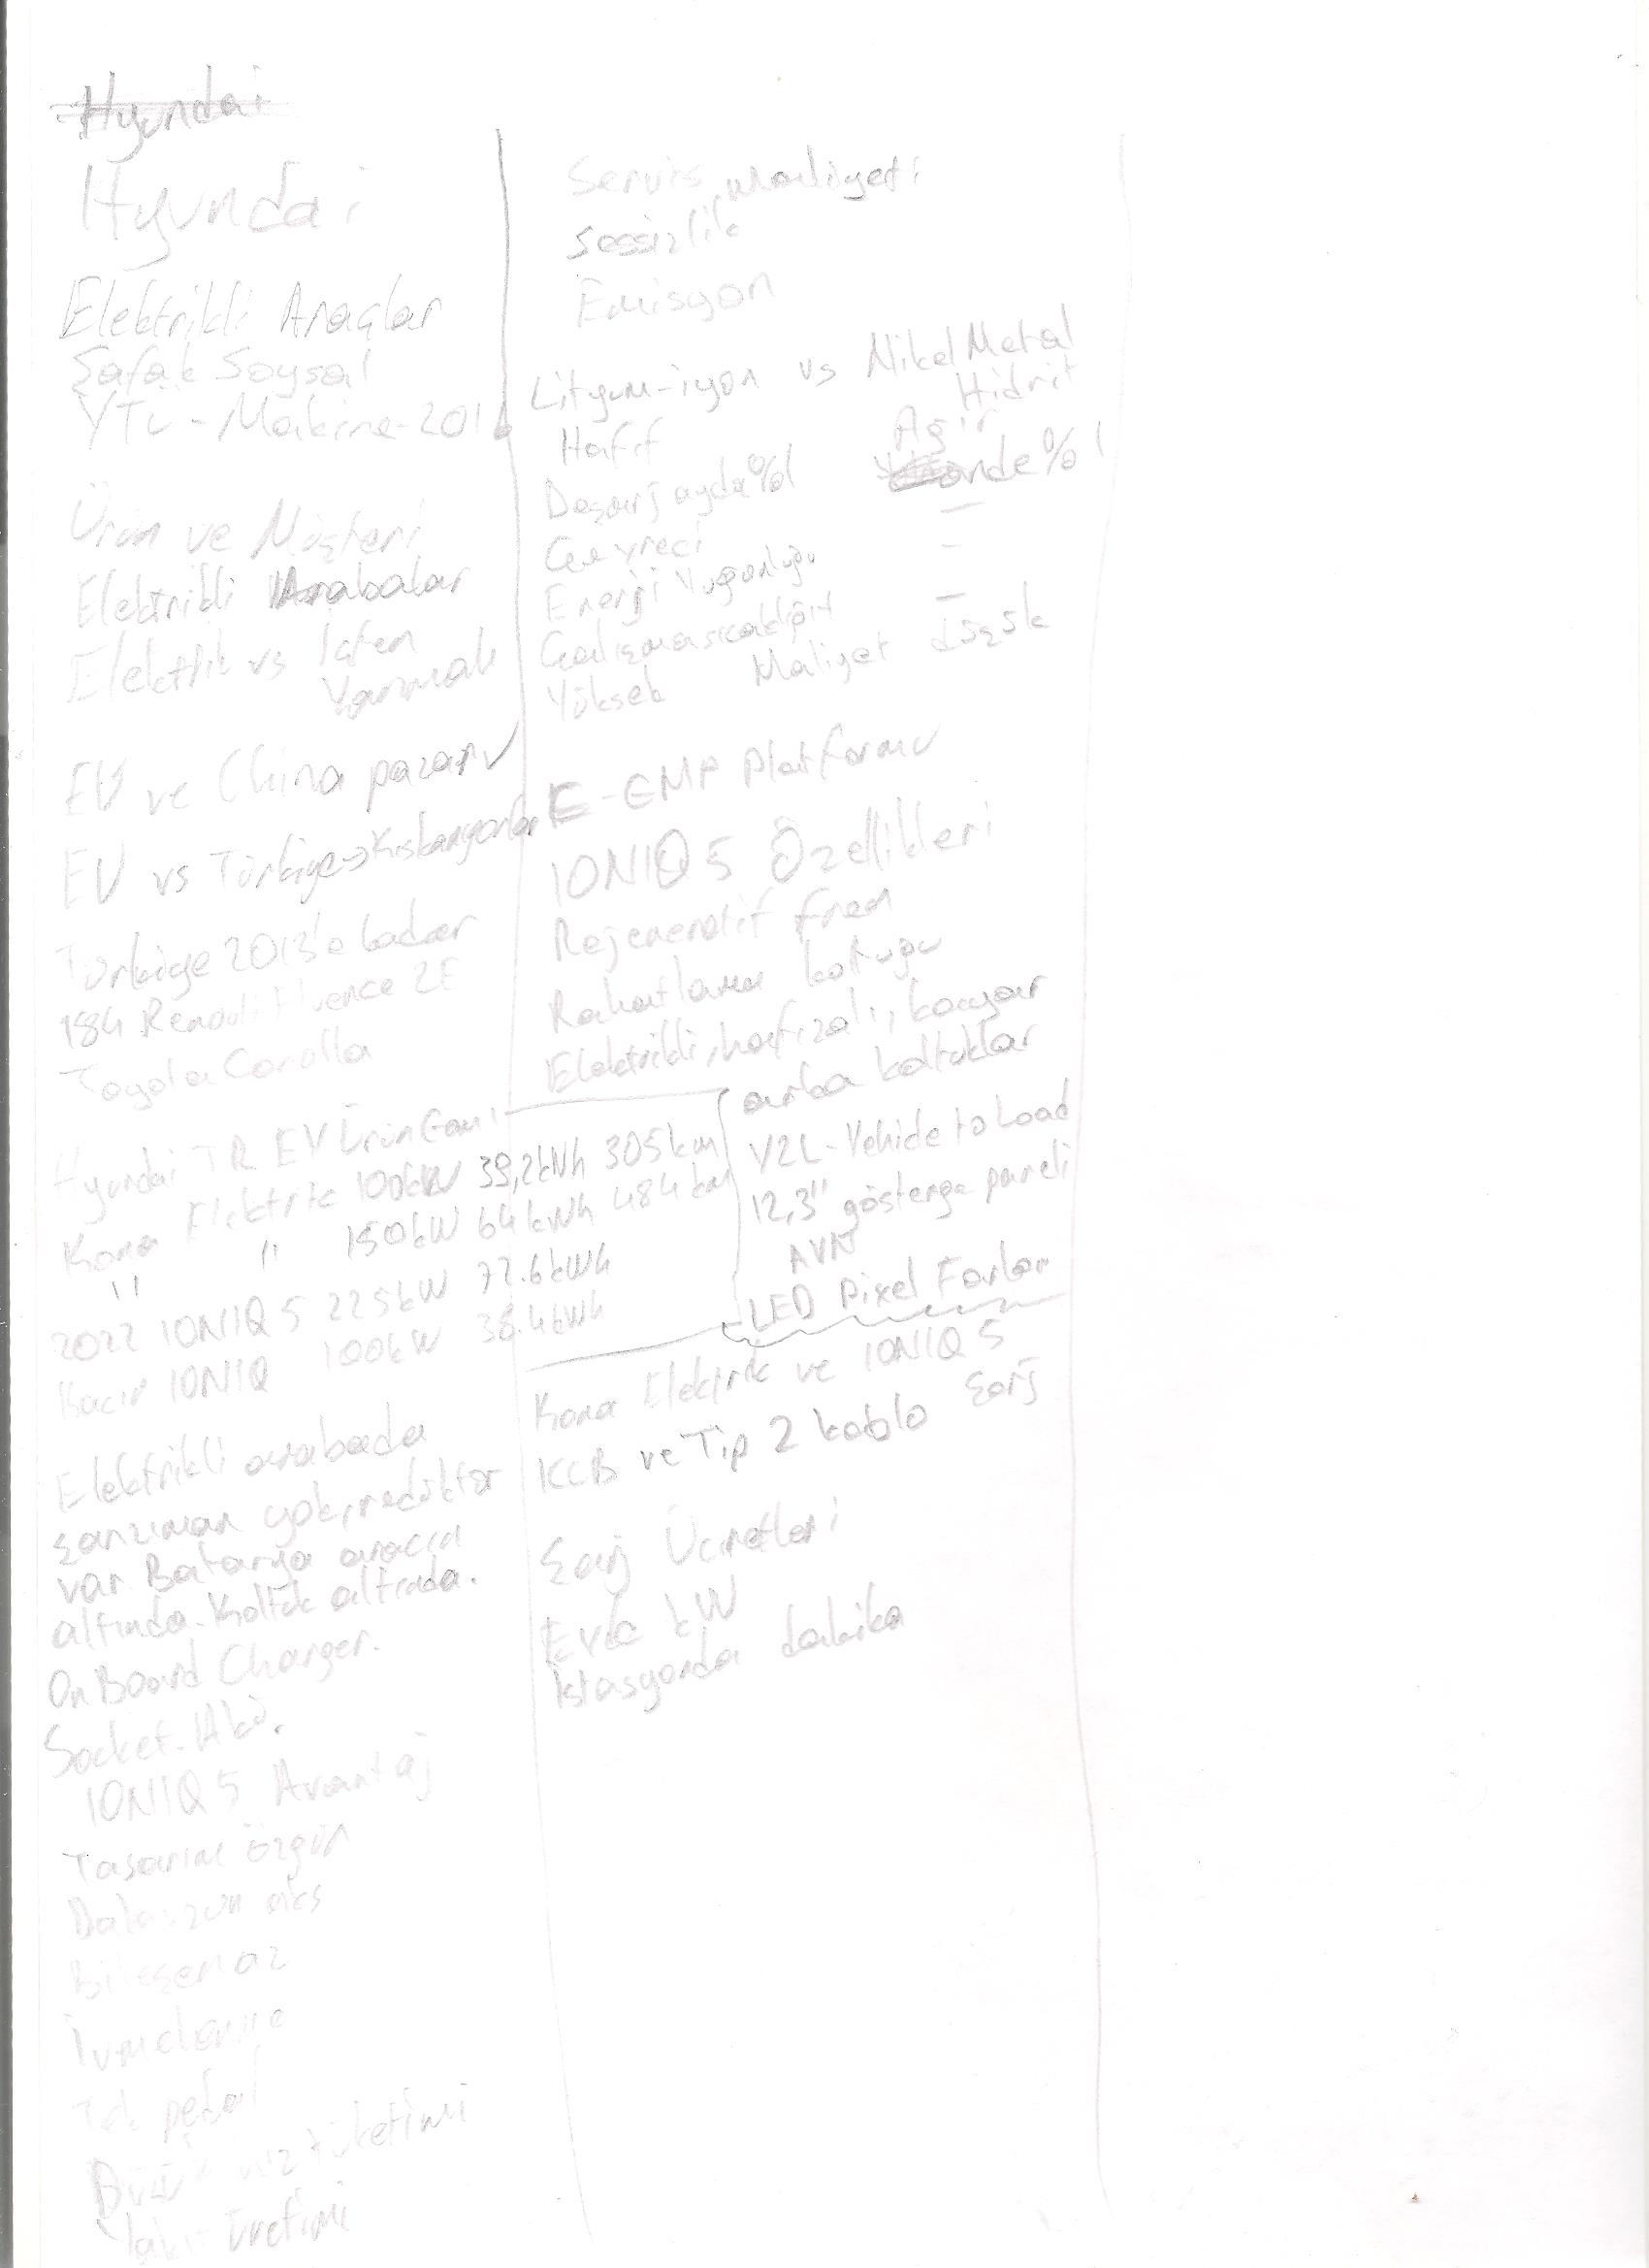 Hyundai
Hyundai
Elektrikli Araçlar
Şafak Soysal
YTÜ - Makine - 201
Ürün ve Müşteri
Elektrikli Arabalar
Elektrik vs İçten
Yanmalı
EV ve China pazarı
EV vs Türkiye → Kıskanıyorlar
Türkiye 2013'e kadar
184 Renault Fluence ZE
Toyota Corolla
Hyundai TR EV Ürün Gamı
Kona Elektrik 100kW 39,2kWh 305km
" " 150kW 64kWh 484km
2022 IONIQ 5 225kW 72.6kWh
IONIQ 100kW 38.4kWh
Elektrikli arabada
şanzıman yok, redüktör
var. Batarya aracın
altında. Koltuk altında.
On Board Charger.
Socket. Akü.
IONIQ 5 Avantaj
Tasarım özgün
uzun aks
Bileşen az
İvmelenme
Tek pedal
tüketimi
üretimi
Servis maliyeti
Sessizlik
Emisyon
Lityum-iyon vs Nikel Metal
Hidrit
Hafif Ağır
Deşarj ayda %1 %1
Çevreci -
Enerji Yoğunluğu -
Çalışma sıcaklığı -
Yüksek Maliyet düşük
E-GMP Platformu
IONIQ 5 Özellikleri
Rejeneratif fren
Rahatlama koltuğu
Elektrikli, hafızalı, kayar
arka koltuklar
V2L - Vehicle to Load
12,3" gösterge paneli
AVN
LED Pixel Farlar
Kona Elektrik ve IONIQ 5
Şarj
ICCB ve Tip 2 kablo
Şarj Ücretleri
Evde kW
İstasyonda dakika